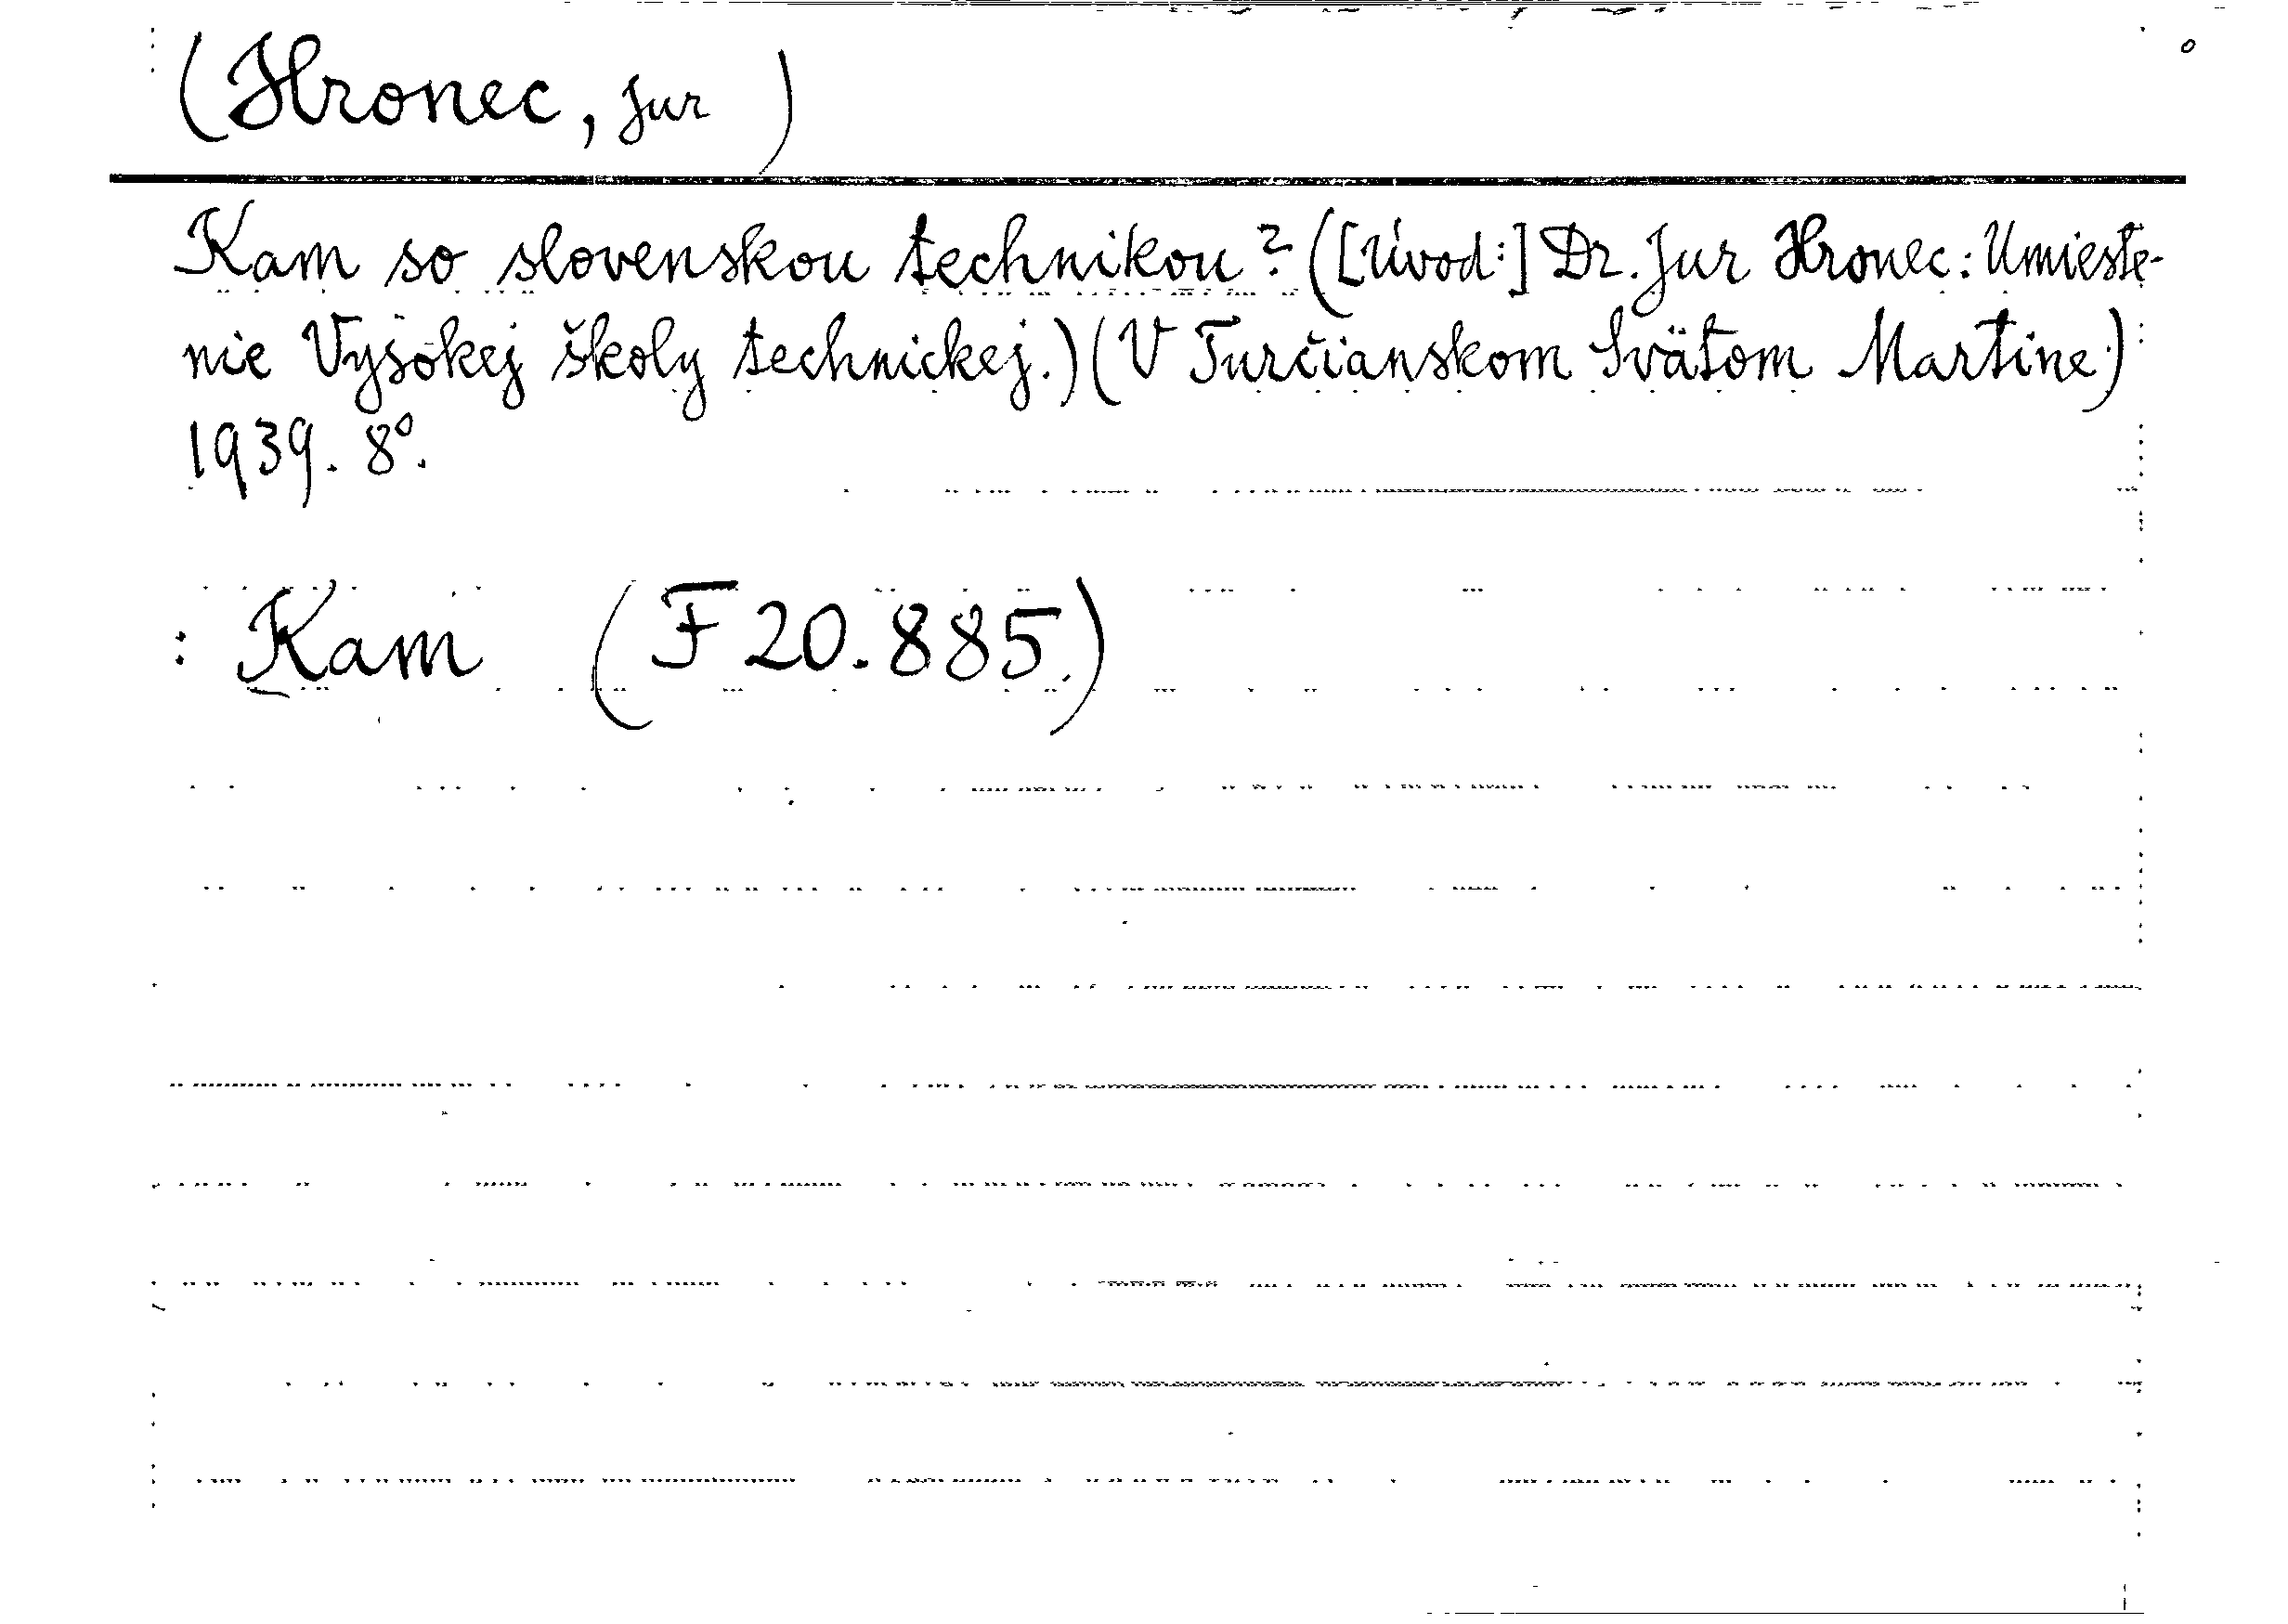 (Hronec, Jur )
Kam so slovenskou technikou? ([Úvod:] Dr. Jur Hronec: Umieste-
nie Vysokej školy technickej.) (V Turčianskom Svätom Martine)
1939. 8°.
: Kam (F 20.885.)